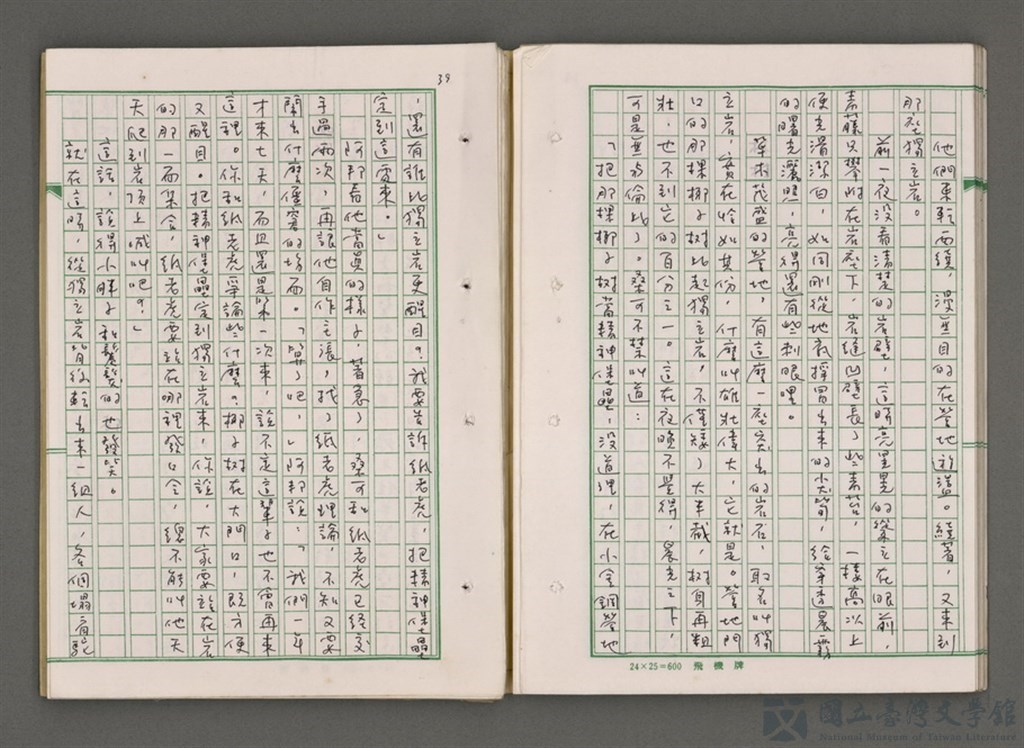 他們東転西繞，漫無目的在營地遊逛。繞著，又來到
那座獨立岩。
前一夜沒看清楚的岩壁，這時亮晃晃的聳立在眼前，
青藤只攀附在岩壁下，岩縫凹壁長了些青苔，一樓高以上
便光滑潔白，如同剛從地底探冒出來的尖筍，給穿透晨霧
的曙光灑照，亮得還有些刺眼哩。
草木茂盛的營地，有這麼一座突出的岩石，取名叫獨
立岩，實在恰如其份，什麼叫雄壯偉大，它就是。營地門
口的那棵椰子樹比起獨立岩，不僅矮了大半截，樹身再粗
壯，也不到它的百分之一。這在夜晚不覺得，晨光之下，
可是無与倫比了。桑可不禁叫道：
「把那棵椰子樹當精神堡壘，沒道理，在小金鋼營地
24×25=600 飛機牌
39
，還有誰比獨立岩更醒目？我要告訴紙老虎，把精神堡壘
定到這兒來。」
阿邦看他當真的樣子，著急了，桑可和紙老虎已經交
手過兩次，再讓他自作主張，找了紙老虎理論，不知又要
鬧出什麼僵窘的場面。「算了吧，」阿邦說：「我們一年
才來七天，而且還是第一次來，說不定這輩子也不會再來
這裡。你和紙老虎爭論些什麼？椰子樹在大門口，既方便
又醒目。把精神堡壘定到獨立岩來，你說，大家要站在岩
的那一面集合，紙老虎要站在哪裡發口令，總不能叫他天
天爬到岩頂上喊叫吧？」
這話，說得小胖子和鬈髮的也發笑。
就在這時，從獨立岩背後転出來一組人，各個塌肩駝
國立臺灣文學館
National Museum of Taiwan Literature